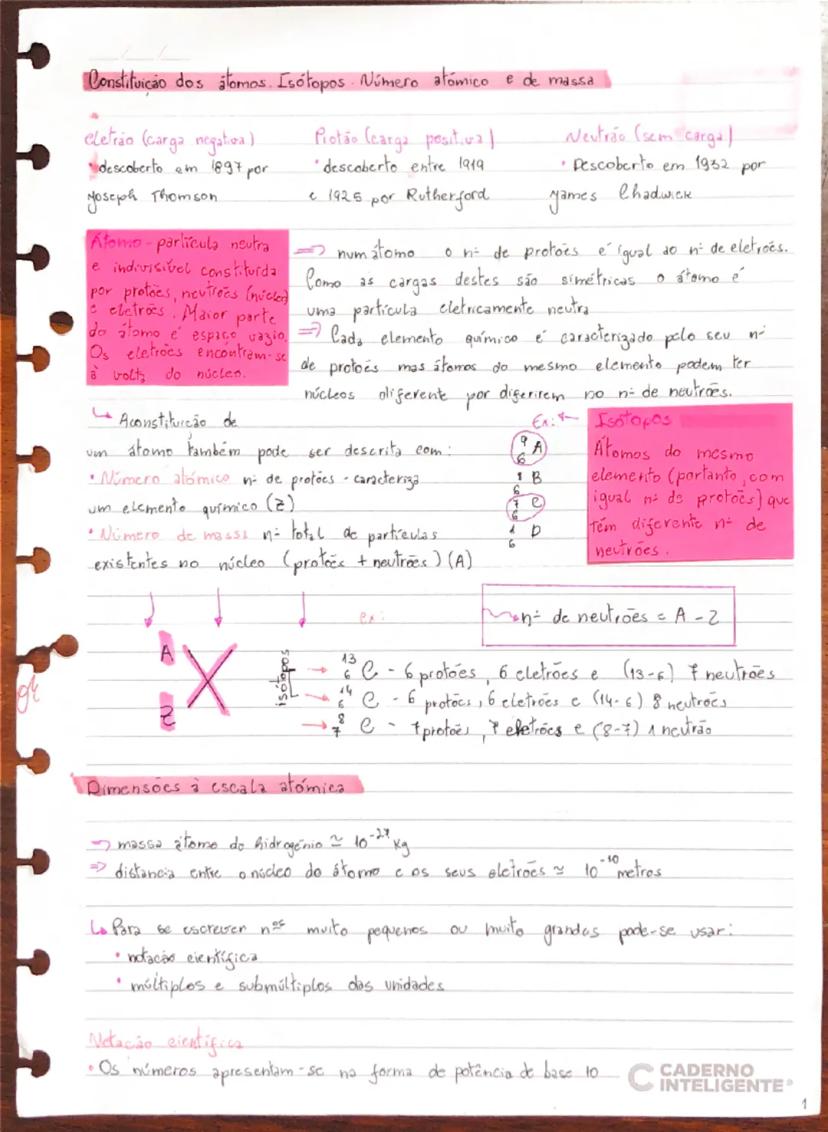 Constituição dos átomos. Isótopos. Número atómico e de massa
Eletrão (carga negativa)
• descoberto em 1897 por
Joseph Thomson
Protão (carga positiva)
• descoberto entre 1919
e 1925 por Rutherford
Neutrão (sem carga)
• Descoberto em 1932 por
James Chadwick
Átomo - partícula neutra
e indivisível constituída
por protões, neutrões (núcleo)
e eletrões. Maior parte
do átomo é espaço vazio.
Os eletrões encontram-se
à volta do núcleo.
⇒ num átomo o nº de protões é igual ao nº de eletrões.
Como as cargas destes são simétricas o átomo é
uma partícula eletricamente neutra
⇒ Cada elemento químico é caracterizado pelo seu nº
de protões mas átomos do mesmo elemento podem ter
núcleos diferente por diferirem no nº de neutrões.
↳ A constituição de
um átomo também pode ser descrita com:
• Número atómico nº de protões - caracteriza
um elemento químico (Z)
• Número de massa nº total de partículas
existentes no núcleo (protões + neutrões) (A)
Ex:
9 6 A
8 6 B
7 6 C
1 6 D
Isótopos
Átomos do mesmo
elemento (portanto, com
igual nº de protões) que
têm diferente nº de
neutrões.
nº de neutrões = A - Z
A
Z X
ex:
isótopos
→ 13 6 C - 6 protões, 6 eletrões e (13-6) 7 neutrões
→ 14 6 C - 6 protões, 6 eletrões e (14-6) 8 neutrões
→ 8 7 C - 7 protões, 7 eletrões e (8-7) 1 neutrão
Dimensões à escala atómica
⇒ massa átomo do hidrogénio ≃ 10⁻²⁷ kg
⇒ distancia entre o núcleo do átomo e os seus eletrões ≃ 10⁻¹⁰ metros
↳ Para se escrever nºs muito pequenos ou muito grandes pode-se usar:
• notação científica
• múltiplos e submúltiplos das unidades
Notação científica
• Os números apresentam-se na forma de potência de base 10
CADERNO
INTELIGENTE®
1